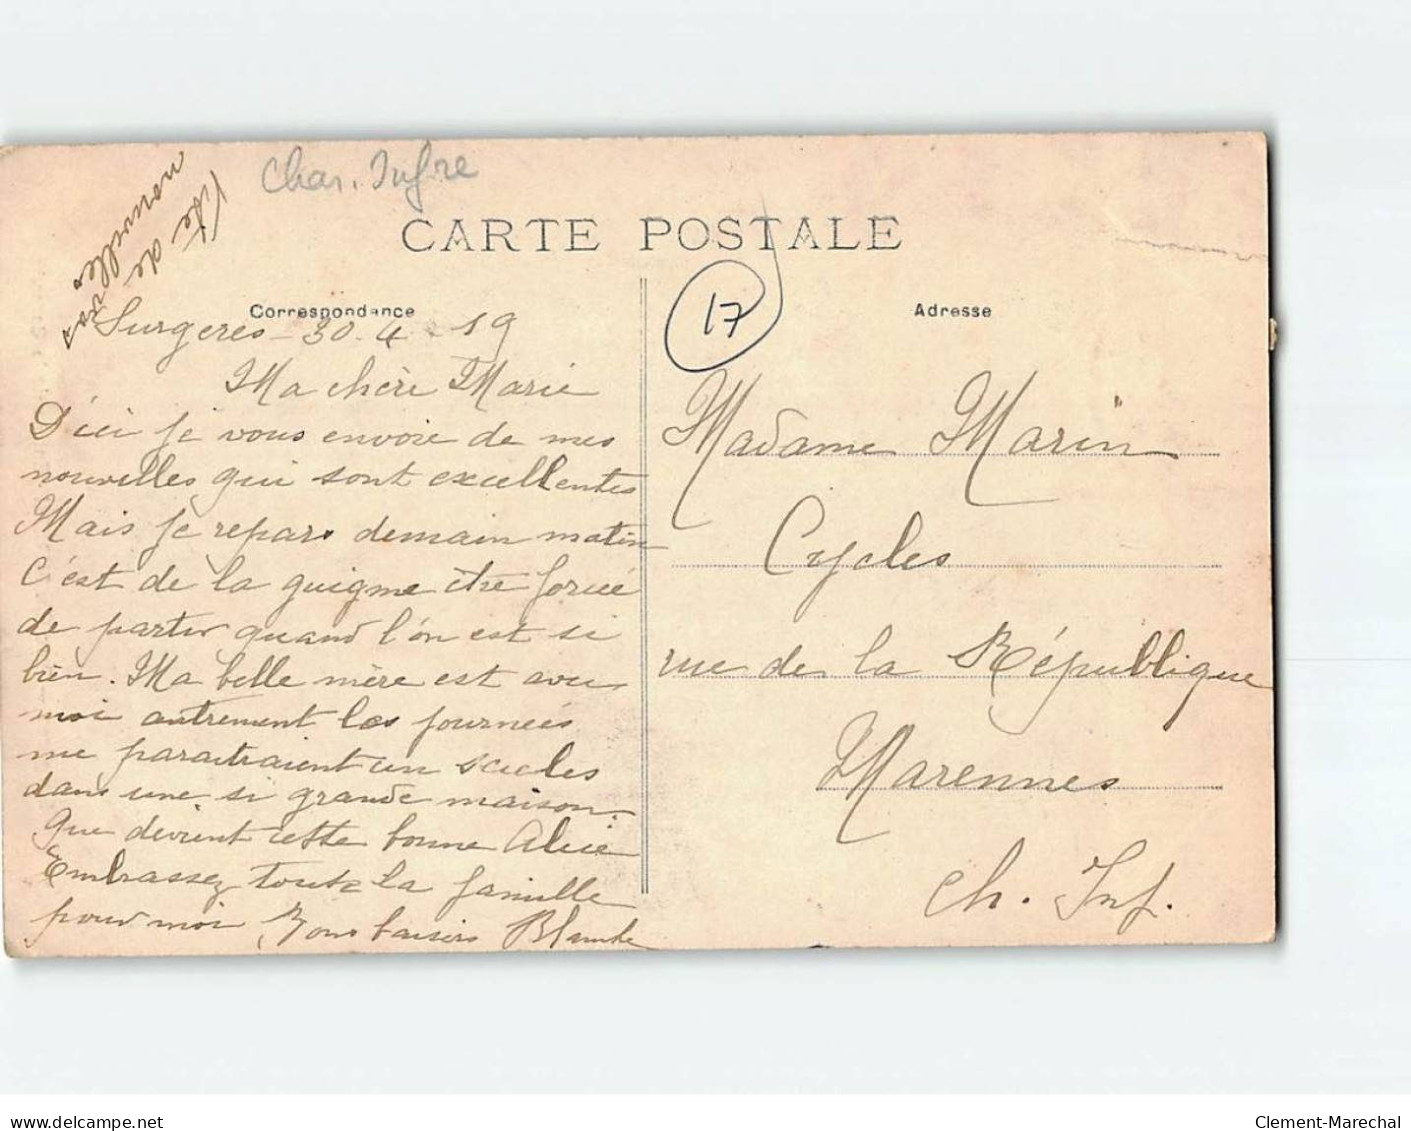 Char. Infre
Vite de
vos
nouvelles
CARTE POSTALE
17
Correspondance
Adresse
Surgeres - 30 - 4 - 19
Ma chère Marie
D'ici je vous envoie de mes
nouvelles qui sont excellentes
Mais je repars demain matin
C'est de la guigne être forcée
de partir quand l'on est si
bien. Ma belle mère est avec
moi autrement les journées
me paraitraient un siecles
dans une si grande maison.
Que devient cette bonne Alice
Embrassez toute la famille
pour moi, Bons baisers Blanche
Madame Marin
Cycles
rue de la République
Marennes
Ch. Inf.
delcampe.net
Clement-Marechal